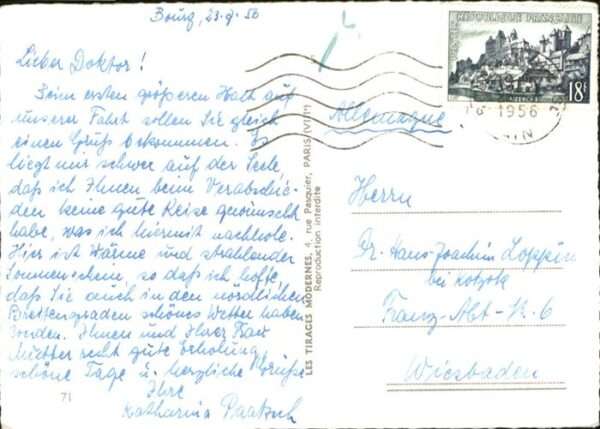 Bourg, 23.9.56
Lieber Doktor!
Beim ersten größeren Halt auf
unserer Fahrt sollen Sie gleich
einen Gruß bekommen. Es
liegt mir schwer auf der Seele,
daß ich Ihnen beim Verabschie-
den keine gute Reise gewünscht
habe, was ich hiermit nachhole.
Hier ist Wärme und strahlender
Sonnenschein, so daß ich hoffe,
daß Sie auch in den nördlichen
Breitengraden schönes Wetter haben
werden. Ihnen und Ihrer Frau
Mutter recht gute Erholung,
schöne Tage u. herzliche Grüße
Ihre
Katharina Paatsch
71
LES TIRAGES MODERNES, 4, rue Pasquier, PARIS (VIIIe)
Reproduction interdite
REPUBLIQUE FRANÇAISE
POSTES
UZERCHE
18F
1956
AIN
Allemagne
Herrn
Dr. Hans-Joachim Loppin
bei
Franz-Abt-Str. 6
Wiesbaden